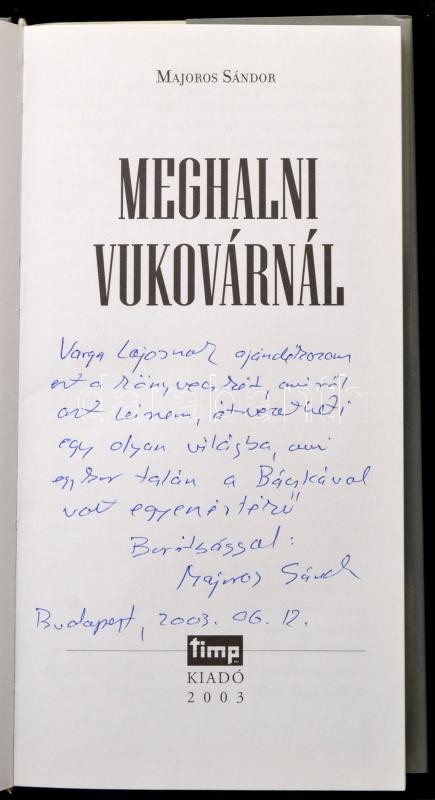 MAJOROS SÁNDOR
MEGHALNI
VUKOVÁRNÁL
Varga Lajosnak ajándékozom
ezt a könyvecskét, amiről
azt hiszem, átvezetheti
egy olyan világba, ami
egykor talán a Bácskával
volt egyenértékű
Barátsággal:
Majoros Sándor
Budapest, 2003. 06. 12.
timp
KIADÓ
2003
darabanth